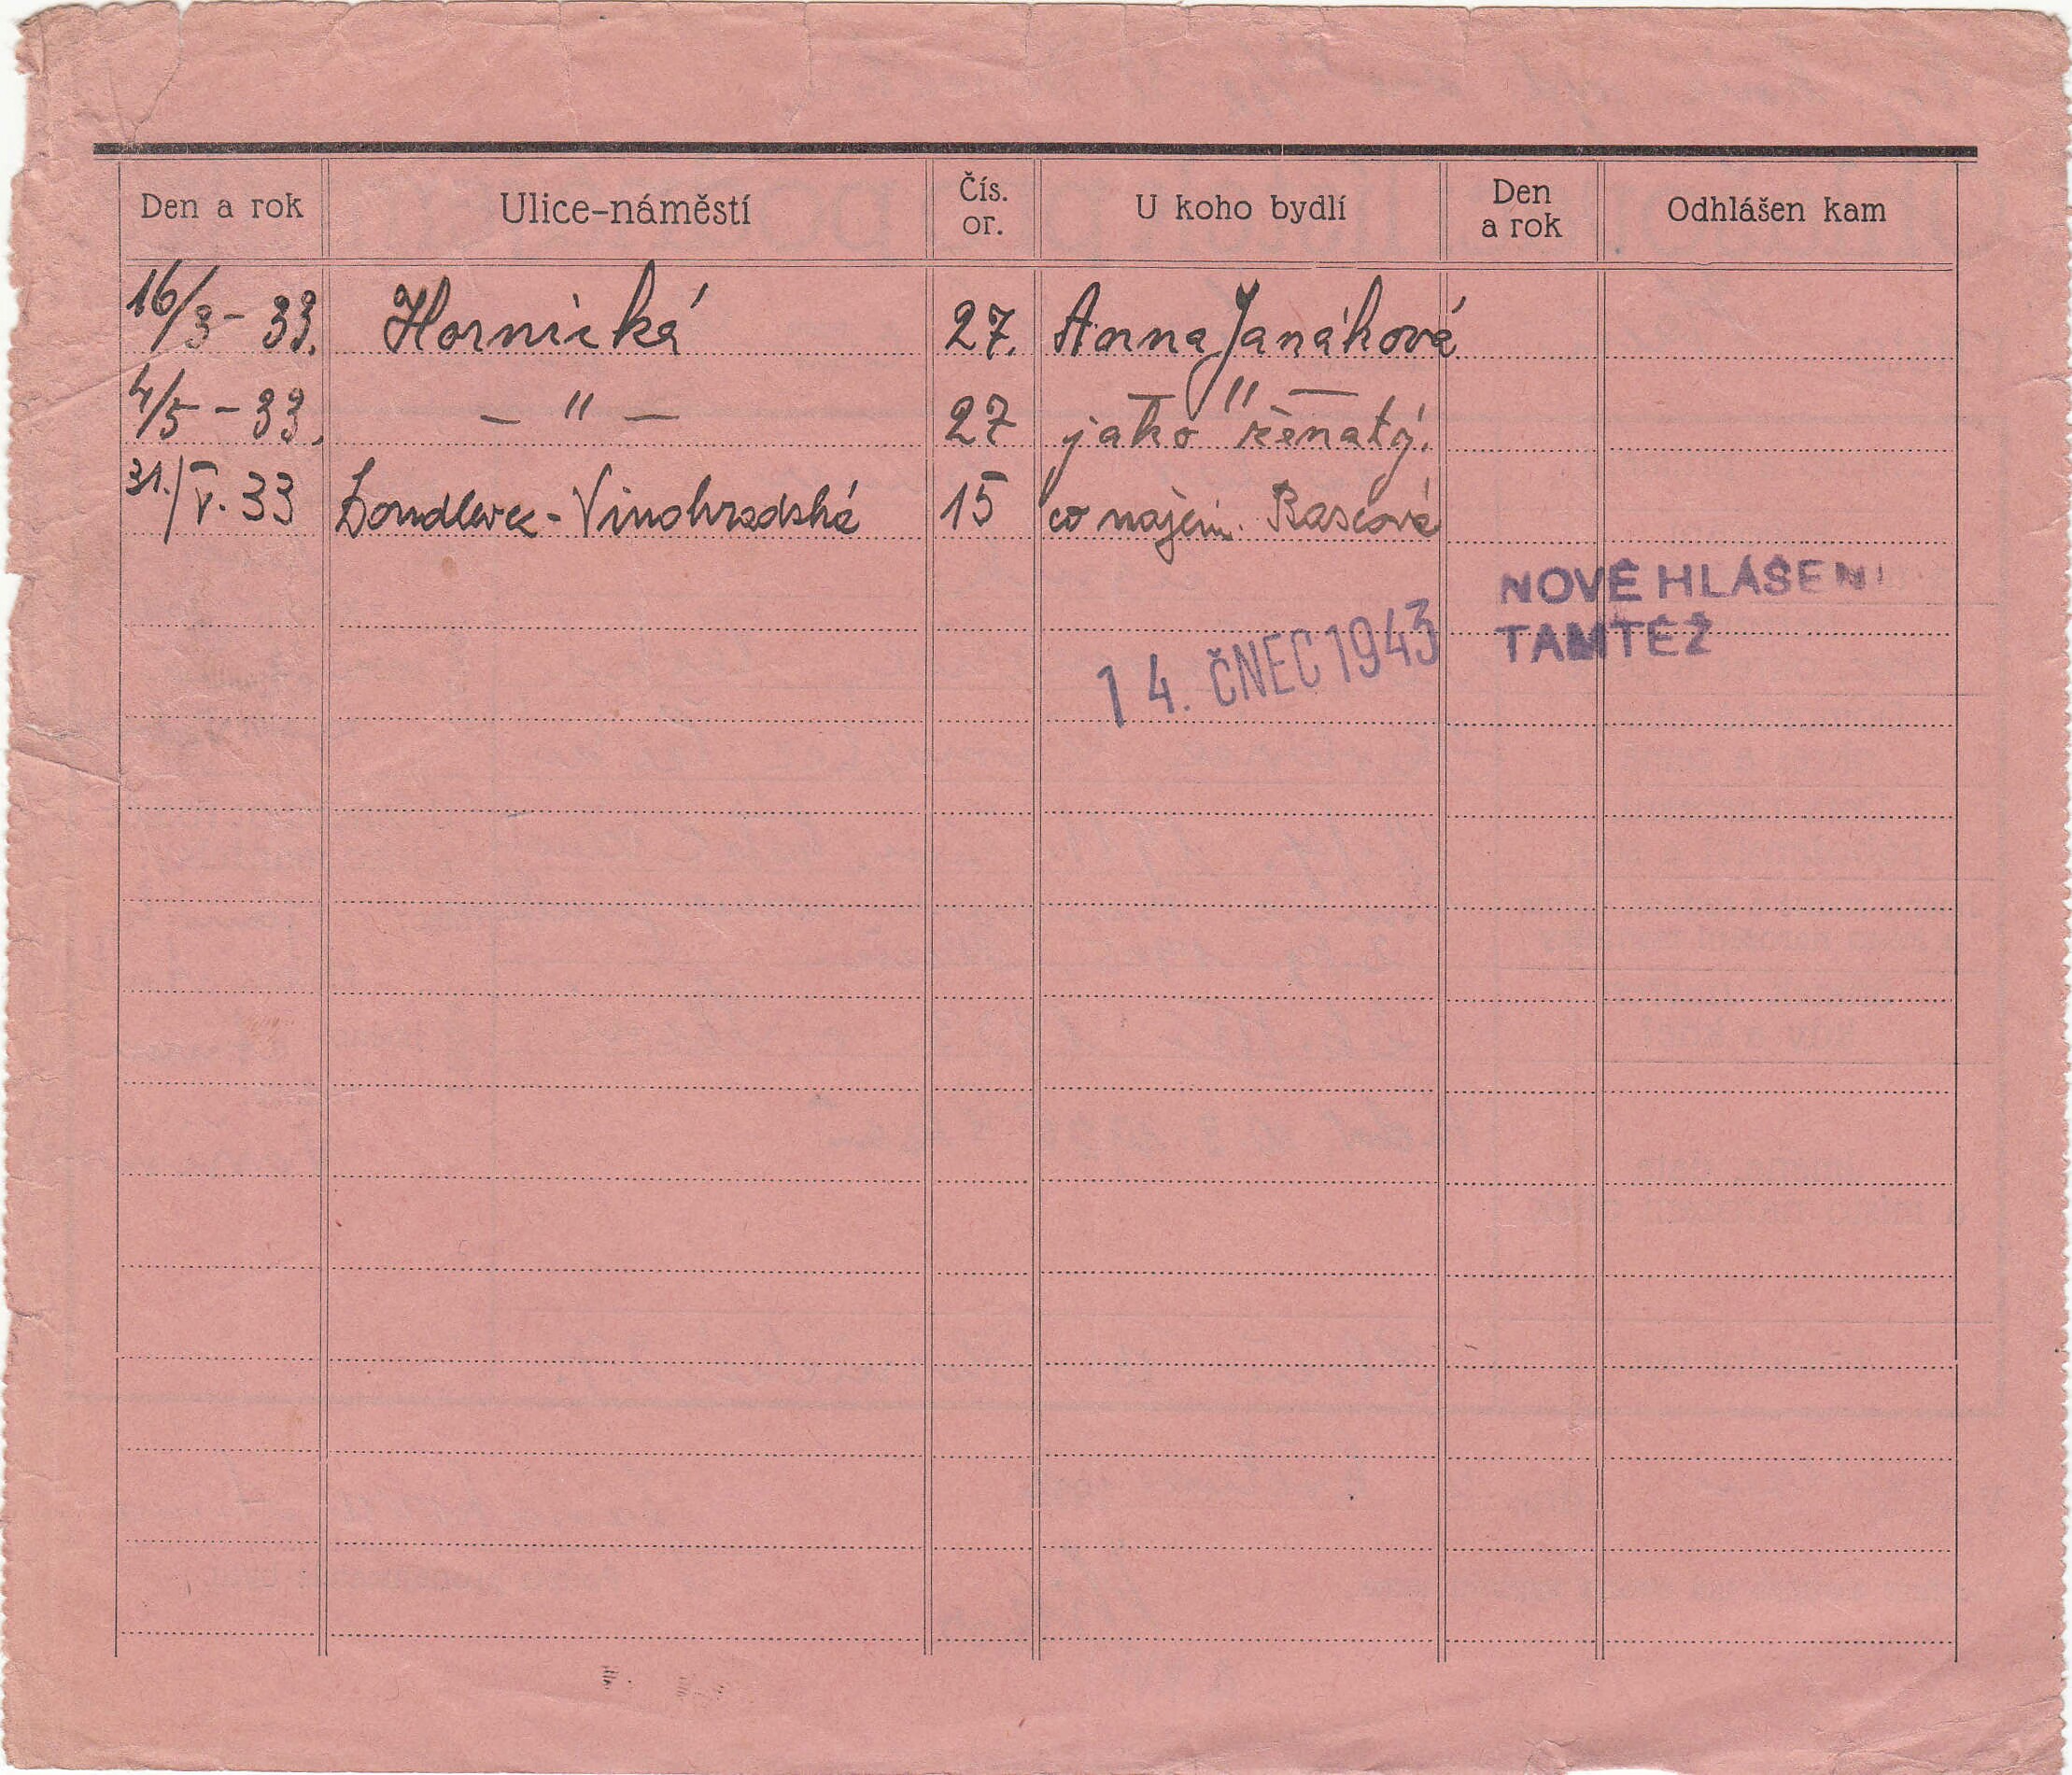 Den a rok Ulice-náměstí Čís. or. U koho bydlí Den a rok Odhlášen kam
16/3 - 33. Hornická 27. Anna Janáková
4/5 - 33. — " — 27 — " —
jako ženatý.
31./V. 33 Vinohradská 15 co nájem. Rascová
NOVÉ HLÁŠENÍ
TAMTÉŽ
14. ČNEC 1943